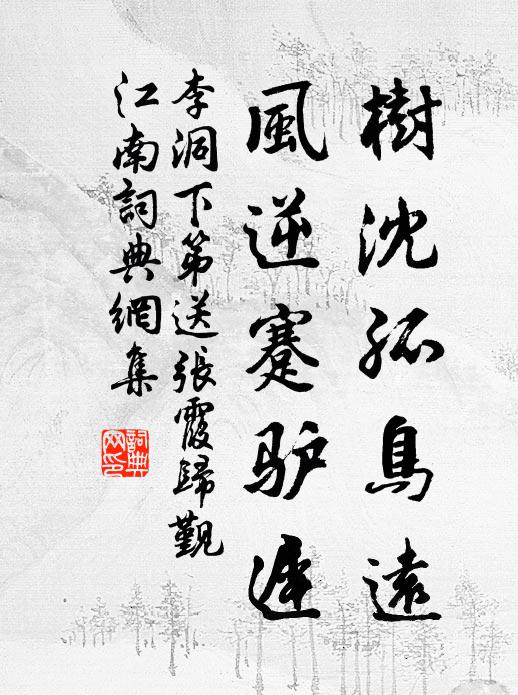 樹沈孤鳥遠
風逆蹇驴遲
李洞下第送張霞歸觀
江南詞典網集
詞典
网印